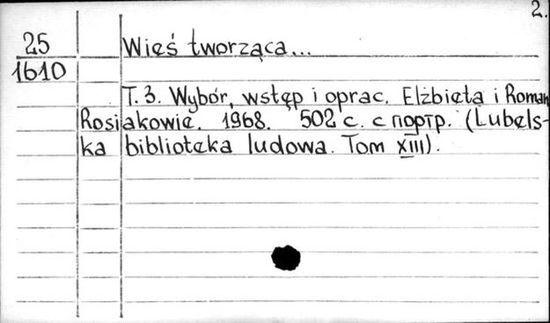 2.
25 Wieś tworząca...
1610
T. 3. Wybór, wstęp i oprac. Elżbieta i Roman
Rosiakowie. 1968. 502 с. с портр. (Lubels-
ka biblioteka ludowa. Tom XIII).